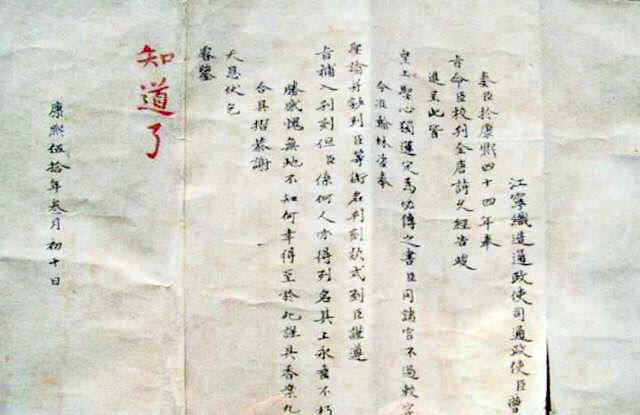 江寧織造通政使司通政使臣曹
奏臣於康熙四十四年奉
旨命臣校刊全唐詩久經告竣
進呈此皆
皇上聖心獨運定為必傳之書臣同諸官不過較字
今准翰林官奉
聖諭并鈔到臣等銜名刊刻欵式到臣謹遵
旨補入刊刻但臣係何人亦得列名其上永垂不朽
感愧無地不知何幸得至於此謹具香案九
合具摺恭謝
天恩伏乞
睿鑒
知道了
康熙伍拾年叁月初十日